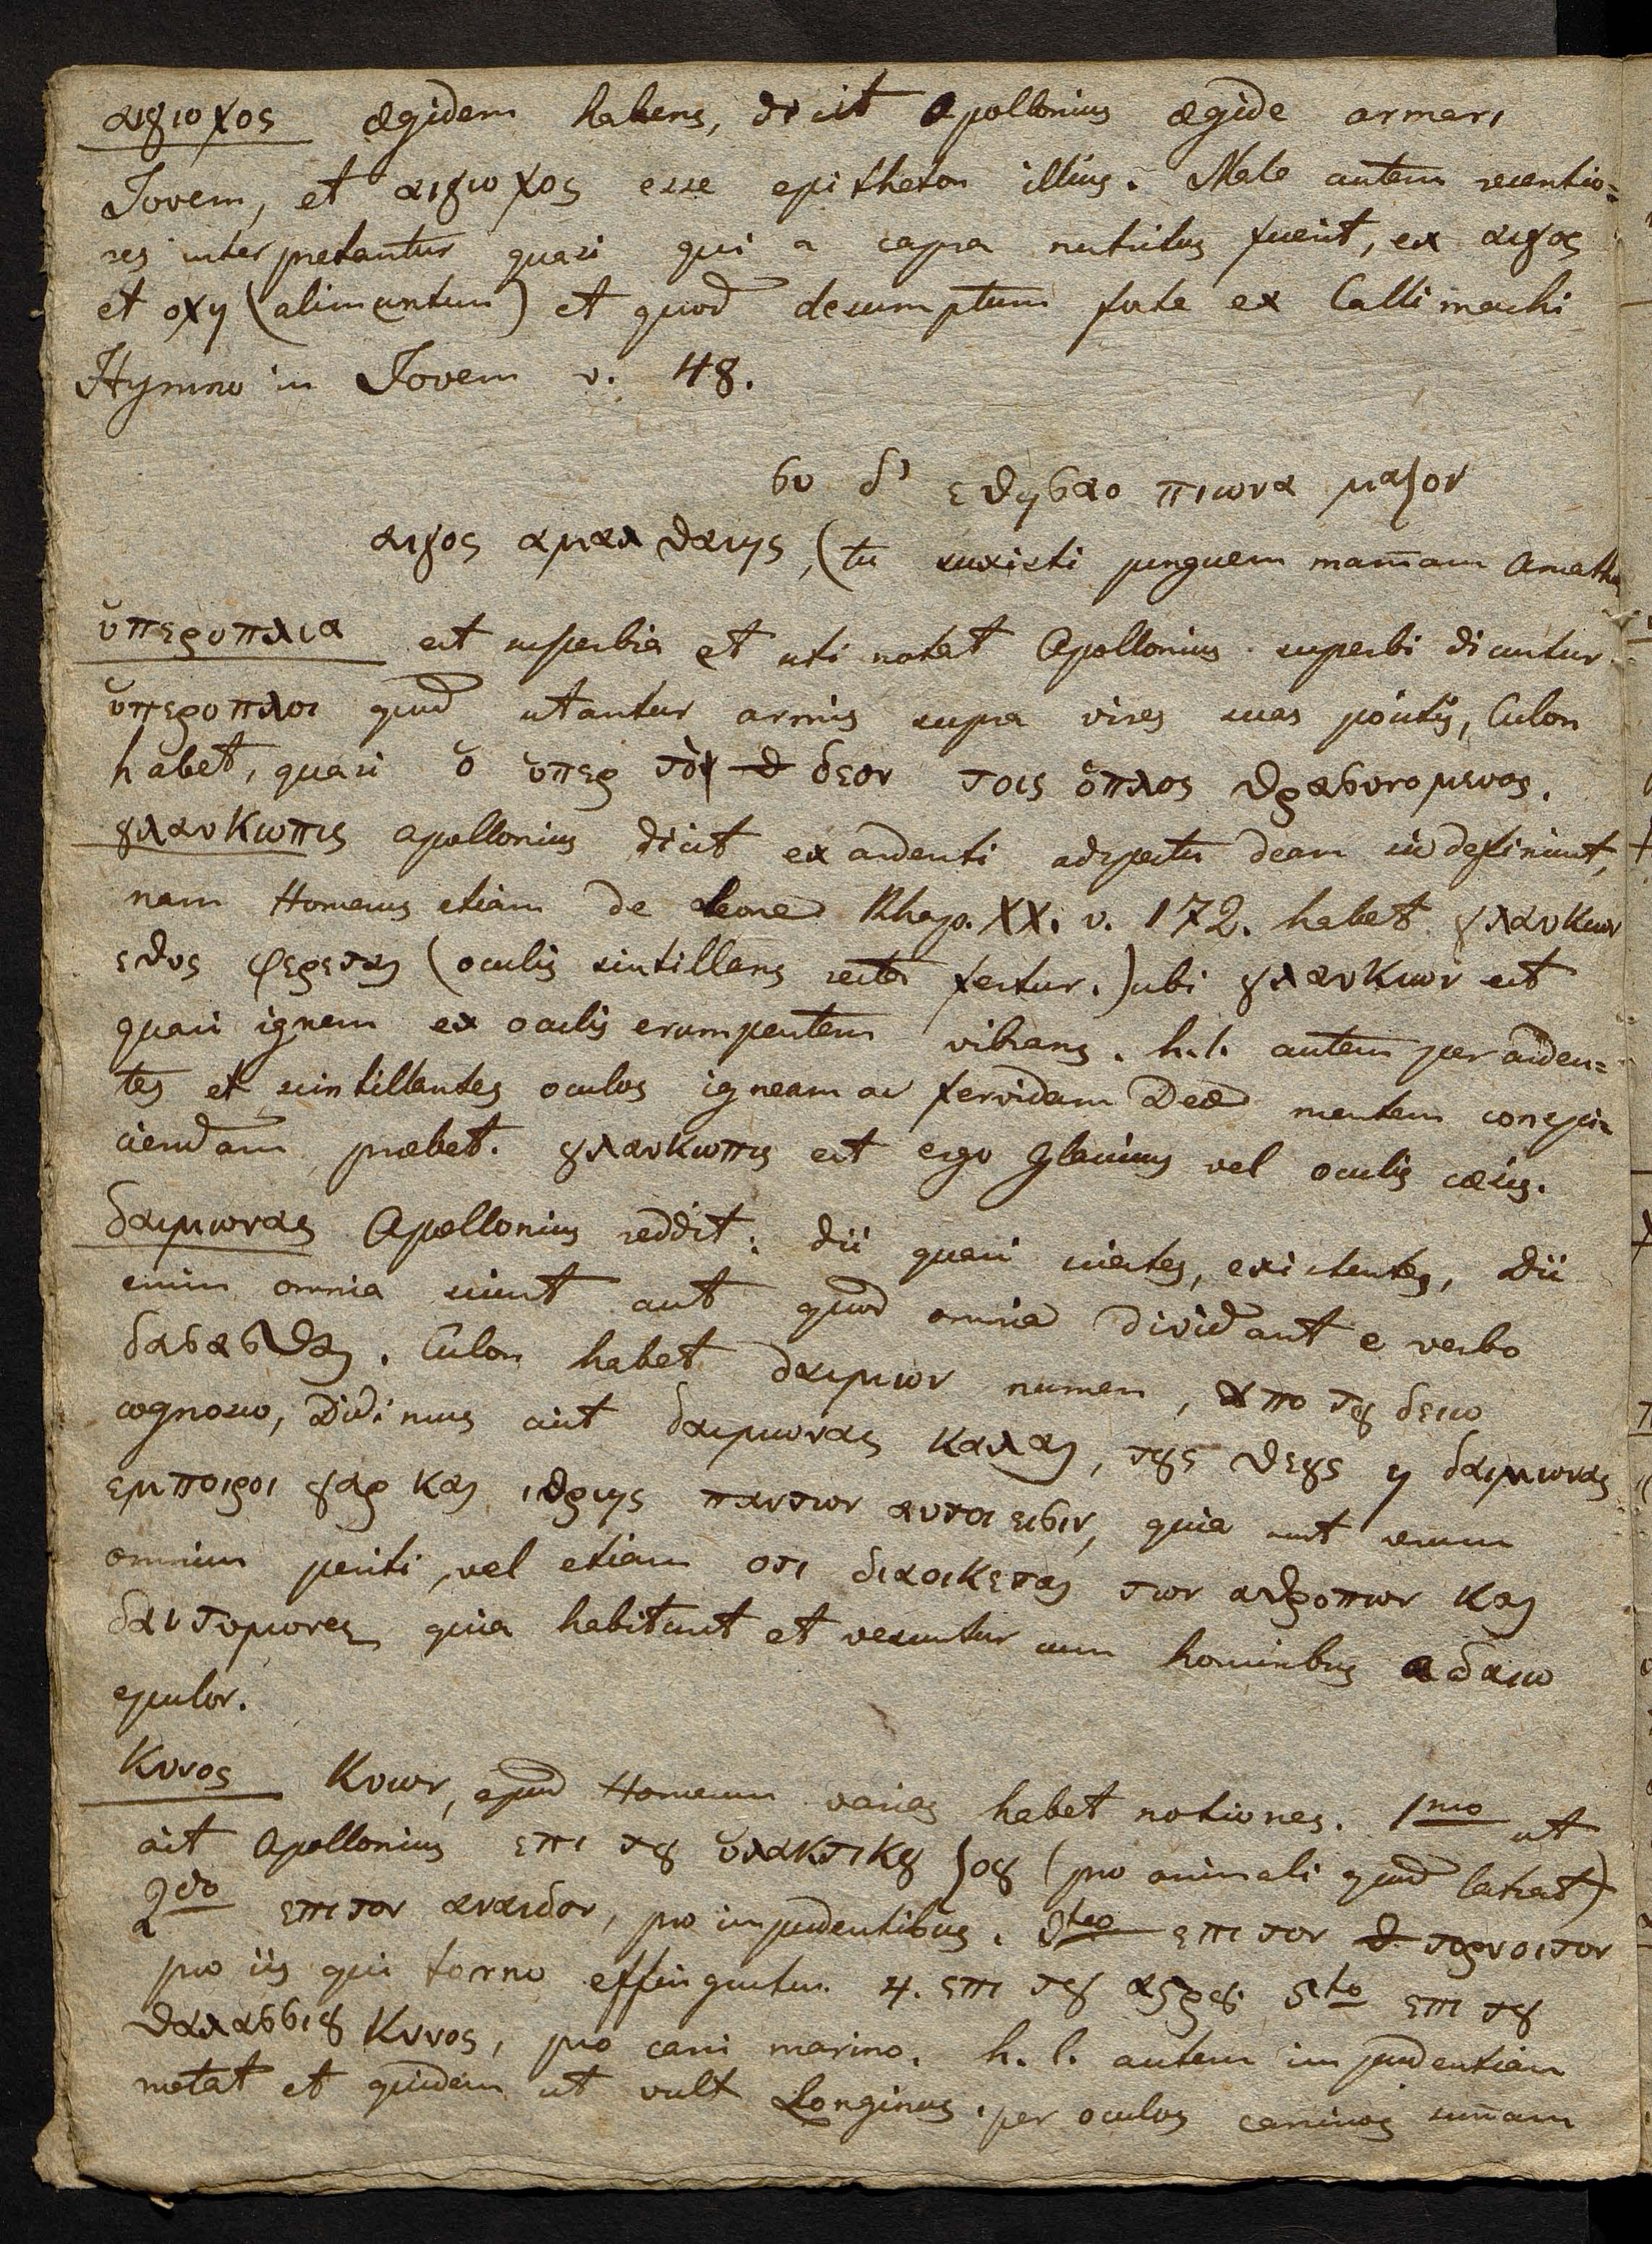 αιγιοχος ægidem habens, dicit Apollonius ægide armari
Jovem, et αιγιοχος esse epitheton illius. Male autem recentio=
res interpretantur quasi qui a capra nutritus fuerit, ex αιγος
et οχη (alimentum) et quod desumptum forte ex Callimachi
Hymno in Jovem v. 48.
συ δ' εθησαο πιωνα μαζον
αιγος αμαλθαιης, (tu suxisti pinguem mam̄am Amalth
ὑπεροπλια est superbia et uti notat Apollonius superbi dicuntur
ὑπεροπλοι quod utantur armis supra vires suas positis, Culon
habet, quasi ὁ ὑπερ τὸ δεον τοις ὁπλος θρασυνομενος.
γλαυκωπις Apollonius dicit ex ardenti adspectu deam sic definiunt,
nam Homerus etiam de Leone Rhaps. XX. v. 172. habet γλαυκιων
εθυς φερεται (oculis sintillans recte fertur.) ubi γλαυκιων est
quasi ignem ex oculis erumpentem vibrans. h. l. autem per arden=
tes et scintillantes oculos igneam ac fervidam Deæ mentem conspi=
ciendam præbet. γλαυκωπις est ergo Glaucus vel oculis cæsis.
δαιμωνας Apollonius reddit: dii quasi scientes, existentes, Dii
enim omnia sciunt aut quod omnia dividant e verbo
δασασθαι. Culon habet δαιμων numen, απο τȣ δειω
cognosco, Didimus ait δαιμωνας καλαι, τȣς θεȣς η δαιμωνας
εμποιροι γαρ και ιδριης παντων αυτοι εισιν, quia sunt rerum
omnium periti, vel etiam οτι διαοικεται των αθροπων και
δαιτυμονες quia habitant et vescuntur cum hominibus a δαιω
epulor.
Κυνος Κυων, apud Homerum varias habet notiones. 1mo ut
ait Apollonius επι τȣ ὑλακτικȣ ζοȣ (pro animali quod latrat)
2do επι τον αναιδον, pro impudentibus. 3tio επι τον τορνοιτον
pro iis qui torno effinguntur. 4. επι τȣ αϛρȣ 5to επι τȣ
θαλασσιȣ Κυνος, pro cani marino. h. l. autem impudentiam
notat et quidem ut vult Longinus, per oculos caninos sum̄am